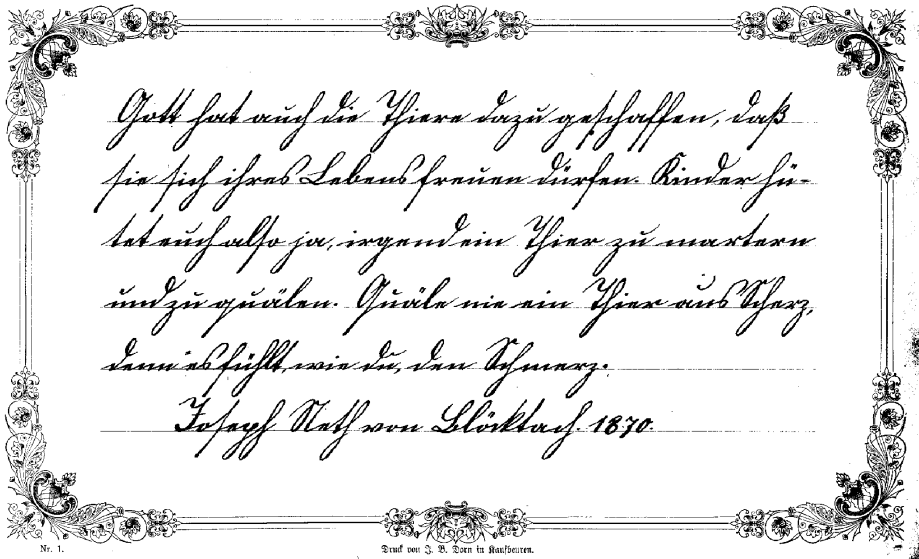 Gott hat auch die Thiere dazu geschaffen, daß
sie sich ihres Lebens freuen dürfen. Kinder hü-
tet euch also ja, irgend ein Thier zu martern
und zu quälen. Quäle nie ein Thier aus Scherz,
denn es fühlt, wie du, den Schmerz.
Joseph Neth von Blöcktach. 1870.
Nr. 1.
Druck von J. B. Dorn in Kaufbeuren.